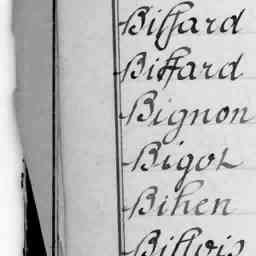 Biffard
Biffard
Bignon
Bigot
Bihen